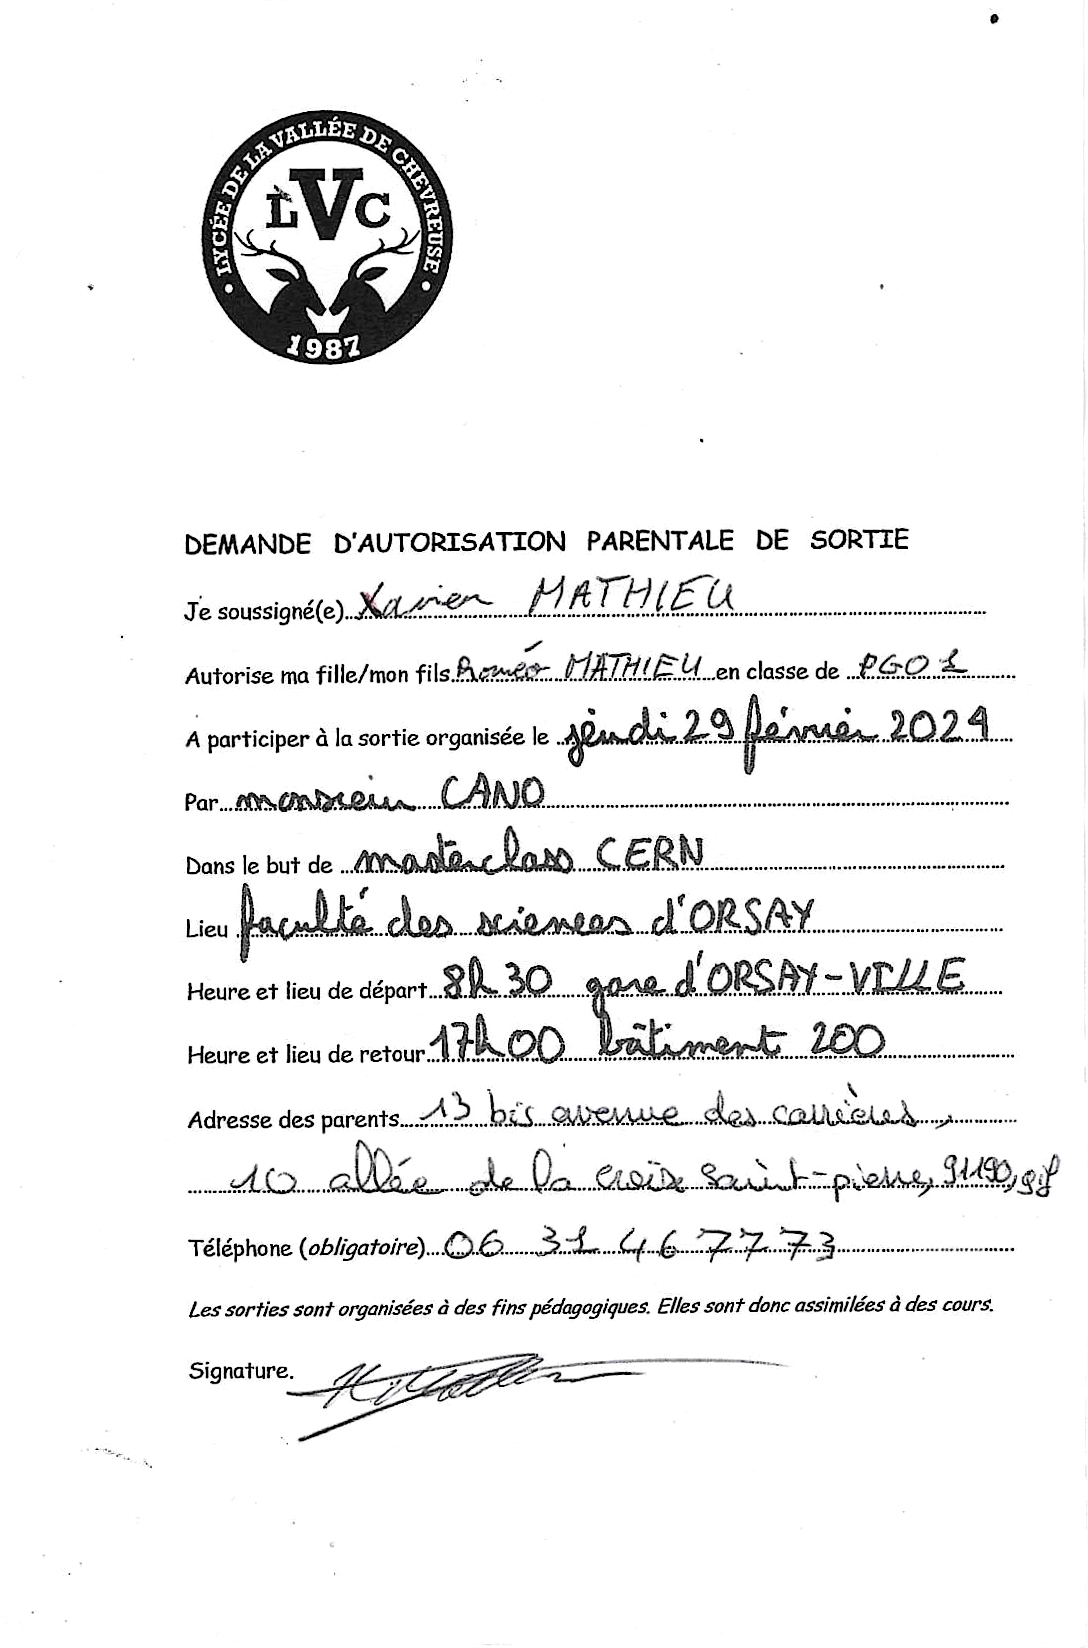 LYCÉE DE LA VALLÉE DE CHEVREUSE
LVC
1987
DEMANDE D'AUTORISATION PARENTALE DE SORTIE
Je soussigné(e) Xavier MATHIEU
Autorise ma fille/mon fils Roméo MATHIEU en classe de PG01
A participer à la sortie organisée le jeudi 29 février 2024
Par monsieur CANO
Dans le but de masterclass CERN
Lieu faculté des sciences d'ORSAY
Heure et lieu de départ 8h30 gare d'ORSAY-VILLE
Heure et lieu de retour 17h00 bâtiment 200
Adresse des parents 13 bis avenue des carrières,
10 allée de la croix Saint-pierre, 91190, gif
Téléphone (obligatoire) 06 31 46 77 73
Les sorties sont organisées à des fins pédagogiques. Elles sont donc assimilées à des cours.
Signature.